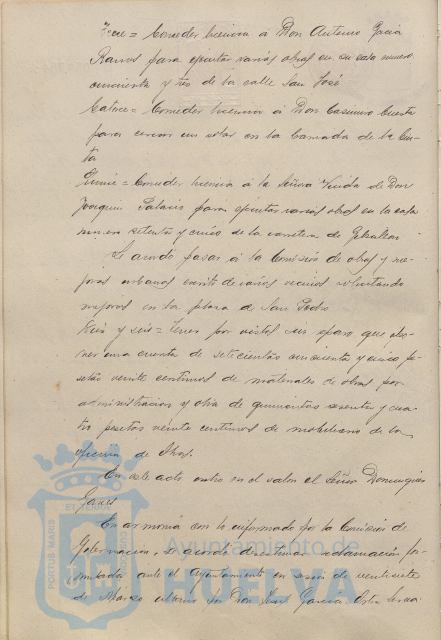 Trece = Conceder licencia á Don Antonio García
Ramos para ejecutar varias obras en su casa numero
cincuenta y tres de la calle San José
Catorce = Conceder licencia á Don Casimiro Cuesta
para cercar un solar en la Barriada de la Cin-
ta
Quince = Conceder licencia á la Señora Viuda de Don
Joaquin Palacios para ejecutar varias obras en la casa
numero setenta y cinco de la carretera de Gibraleon
Se acordó pasar á la Comisión de obras y me-
joras urbanas escrito de varios vecinos solicitando
mejoras en la plaza de San Pedro
y seis = por que
nes una cuenta de setecientas cincuenta y cinco pe-
setas veinte centimos de materiales de obras por
administracion y otra de quinientas sesenta y cua-
tro pesetas veinte centimos de mobiliario de la
oficina de Obras.
En este acto entro en el salon el Señor Dominguez
Garcés
En armonia con lo informado por la Comisión de
Gobernacion, se acordó desestimar reclamación for-
mulada ante el Ayuntamiento en sesion de veintisiete
de Marzo ultimo por Don Luis Garcia
PORTUS MARIS
ET TERRAE
Ayuntamiento de
HUELVA